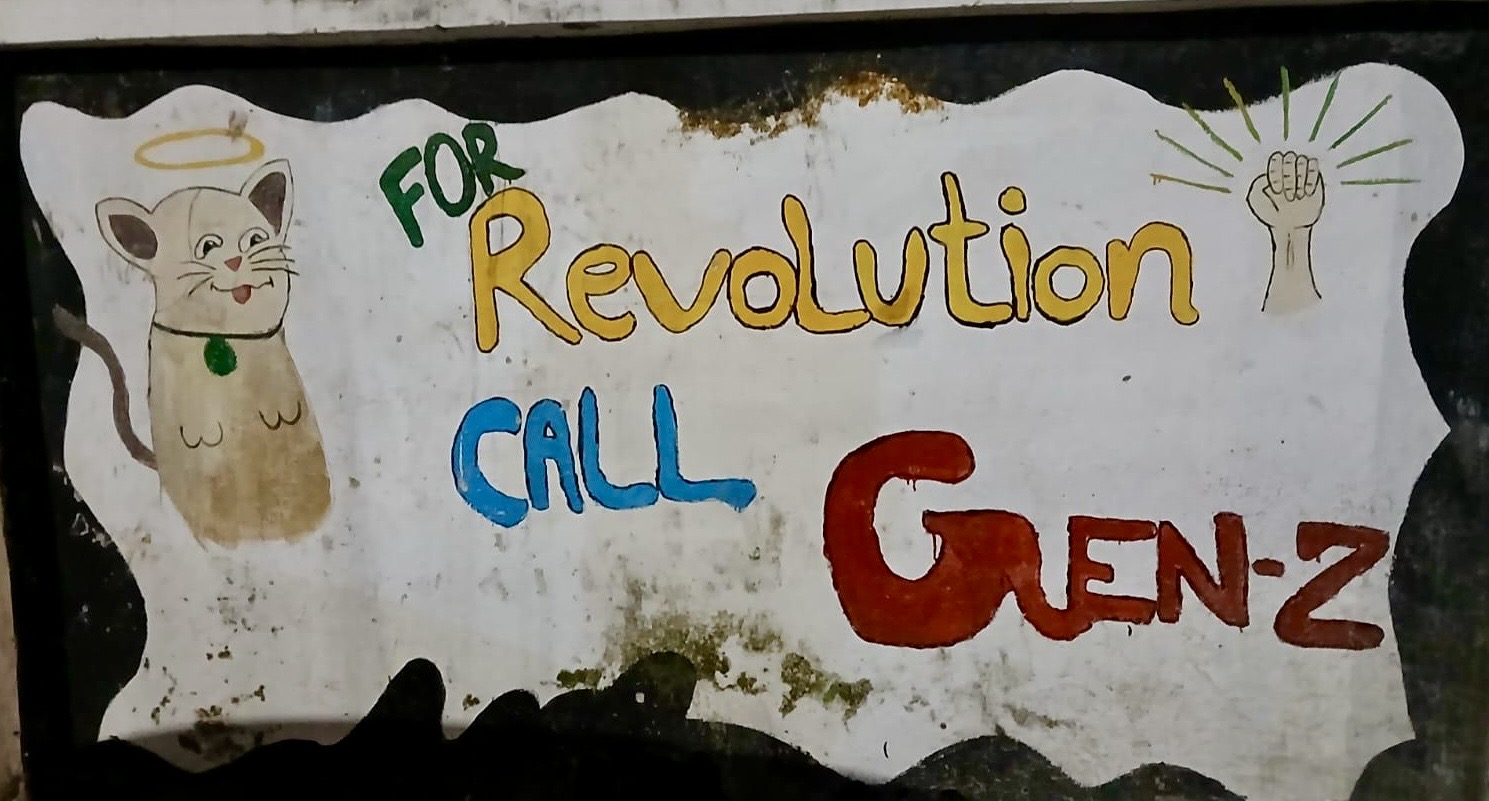 FOR
Revolution
CALL
GEN-Z